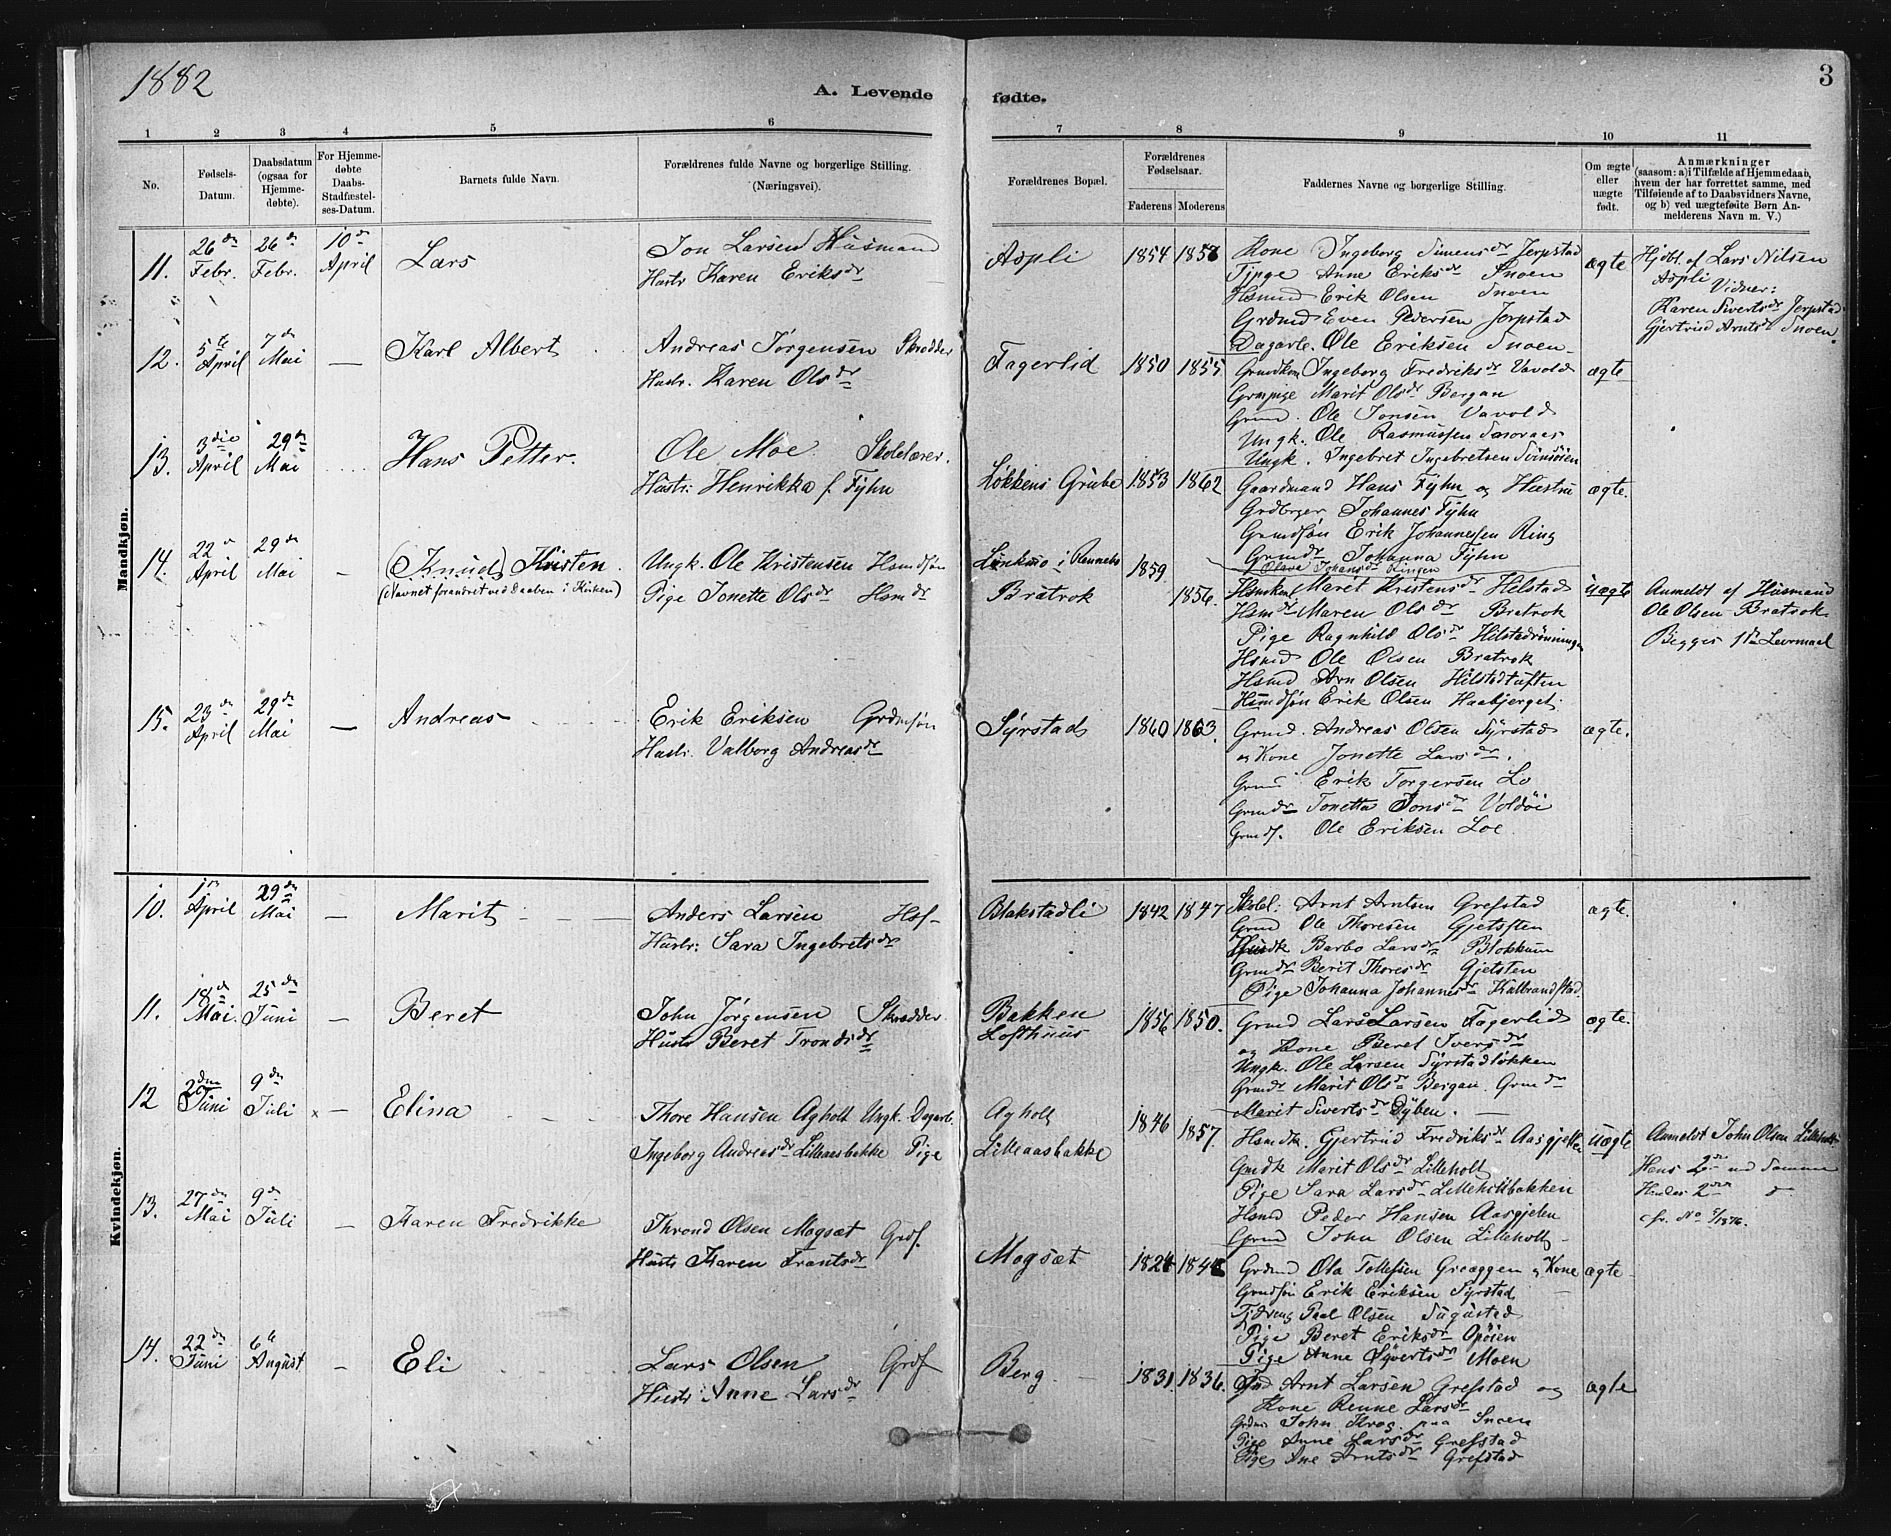 1882
A. Levende
fødte.
3
1 2 3 4 5 6 7 8 9 10 11
No.
Fødsels-Datum.
Daabsdatum (ogsaa for Hjemmedøbte).
For Hjemmedøbte Daabs-Stadfæstelses-Datum.
Barnets fulde Navn.
Forældrenes fulde Navne og borgerlige Stilling. (Næringsvei).
Forældrenes Bopæl.
Forældrenes Fødselsaar.
Faderens Moderens
Faddernes Navne og borgerlige Stilling.
Om ægte eller uægte født.
Anmærkninger
(saasom: a) i Tilfælde af Hjemmedaab, hvem der har forrettet samme, med Tilføiende af to Daabsvidners Navne, og b) ved uægtefødte Børn Anmelderens Navn m. V.)
Mandkjøn.
11. 26de Febr. 26de Febr. 10de April Lars
Jon Larsen Husmand
Hustr Karen Eriksdr
Aspli 1854
Kone Ingeborg Simensdr Jerpstad
Tjpge Anne Eriksdr Snoen
Hsmd Erik Olsen Snoen
Grdmd Even Pedersen Jerpstad
Dagarb. Ole Eriksen Snoen
ægte
Hjdbt af Lars Nilsen
Aspli Vidner:
Karen Sivertsdr Jerpstad
Gjertrud Arntsdr Snoen.
12. 5te April 7de Mai — Karl Albert
Andreas Jørgensen Skrædder
Hustr. Karen Olsdr
Fagerlid 1850 1855
Grmdkon Ingeborg Fredriksdr Vavold
Grmpige Marit Olsdr Bergan
Grmd. Ole Jonsen Vavold
Ungk. Ole Rasmussen
Ungk. Ingebret Ingebretsen Svinsøien
ægte
13. 3die April 29de Mai Hans Petter.
Ole Moe. Skolelærer.
Hustr: Henrikka f. Fyhn
Løkkens Grube 1853 1862
Gaardmand Hans Fyhn og Hustru
Grdbrger Johannes Fyhn
Grmdsøn Erik Johannesen Ring
Grmdr Johanna Fyhn
Olava Johansdr Ringen
ægte.
14. 22de April 29de Mai — (Knud) Kristen.
(Navnet forandret ved Daaben i Kirken)
Ungk. Ole Kristensen Hsmdsøn
Pige Jonette Olsdr Hsmdr
Linkmo i Rennebo 1859.
Bratrok 1856.
Hsmkon Marit Kristensdr Hilstad
Hsmdr Maren Olsdr Bratrok
Pige Ragnhild Olsdr Hilstadrønningen
Hsmd Ole Olsen Bratrok
Hsmd Arn Olsen Hilstadtuften
Hsmdsøn Erik Olsen Haabjerget.
uægte
Anmeldt af Husmand
Ole Olsen Bratrok.
Begges 1ste Leiermaal
15. 23de April 29de Mai — Andreas
Erik Eriksen Grdmsøn
Hustr. Valborg Andreasdr
Syrstad 1860 1863.
Grmd. Andreas Olsen Syrstad
og Kone Jonette Larsdr.
Grmd Erik Torgersen Lo
Grmdr Tonetta Jonsdr Voldøi
Grmds. Ole Eriksen Loe.
ægte.
Kvindekjøn.
10. 1ste April 29de Mai — Marit
Anders Larsen Hsf
Hustr: Sara Ingebretsdr
Blakstadli 1842 1847
Skolel: Arnt Arntsen Grefstad
Grmd Ole Thoresen Gjetsften
Barbo Larsdr Blokkum
Grmdr Berit Thoresdr Gjetsten
Pige Johanna Johannesdr Kalbrandstad.
ægte.
11. 18de Mai. 25de Juni — Beret
John Jørgensen Skrædder
Hustr Beret Trondsdr
Bakken
Lofthuus 1856 1850.
Grmd Lars Larsen Fagerlid
og Kone Beret Iversdr
Ungk. Ole Larsen Syrstadløkken
Grmdr Marit Olsdr Bergan. Grmdr
Marit Sivertsdr Dyben. —
ægte.
12 2den Juni 9de Juli x — Elina
Thore Hansen Agholt Ungk. Dagarb.
Ingeborg Andreasdr Lilleaasbakke Pige
Agholt 1846
Lilleaasbakke 1857.
Hsmdk. Gjertrud Fredriksdr Aasgjetten
Gmdk Marit Olsdr Lilleholt
Pige Sara Larsdr Lilleholtbakken
Hsmd Peder Hansen Aasgjelen
Grmd John Olsen Lilleholt
uægte
Anmeldt John Olsen Lilleholt
Hans 2det med Samme
Hendes 2det d
cfr. No 5/1876.
13. 27de Mai 9de Juli — Karen Fredrikke
Thrond Olsen Mogsæt Grdf.
Hustr Karen Frantsdr
Mogsæt 1824
Grdmd Ola Tollefsen Greæggen og Kone
Grmdsøn Erik Eriksen Syrstad
Tjdreng Paal Olsen Sugustad
Pige Beret Eriksdr Opøien
Pige Anne Syvertsdr Moen
ægte
14. 22de Juni 6te August — Eli
Lars Olsen Grdf
Hustr: Anne Larsdr
Berg 1831. 1836.
Arnt Larsen Grefstad og
Kone Renne Larsdr
Grdm John Krog paa Snoen
Pige Anne Larsdr Grefstad
Pige Ane Arntsdr Grefstad
ægte